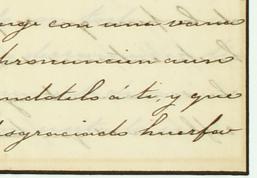 con una vana
pronuncien aun
ndotelo á ti, y que
sgraciado huerfa